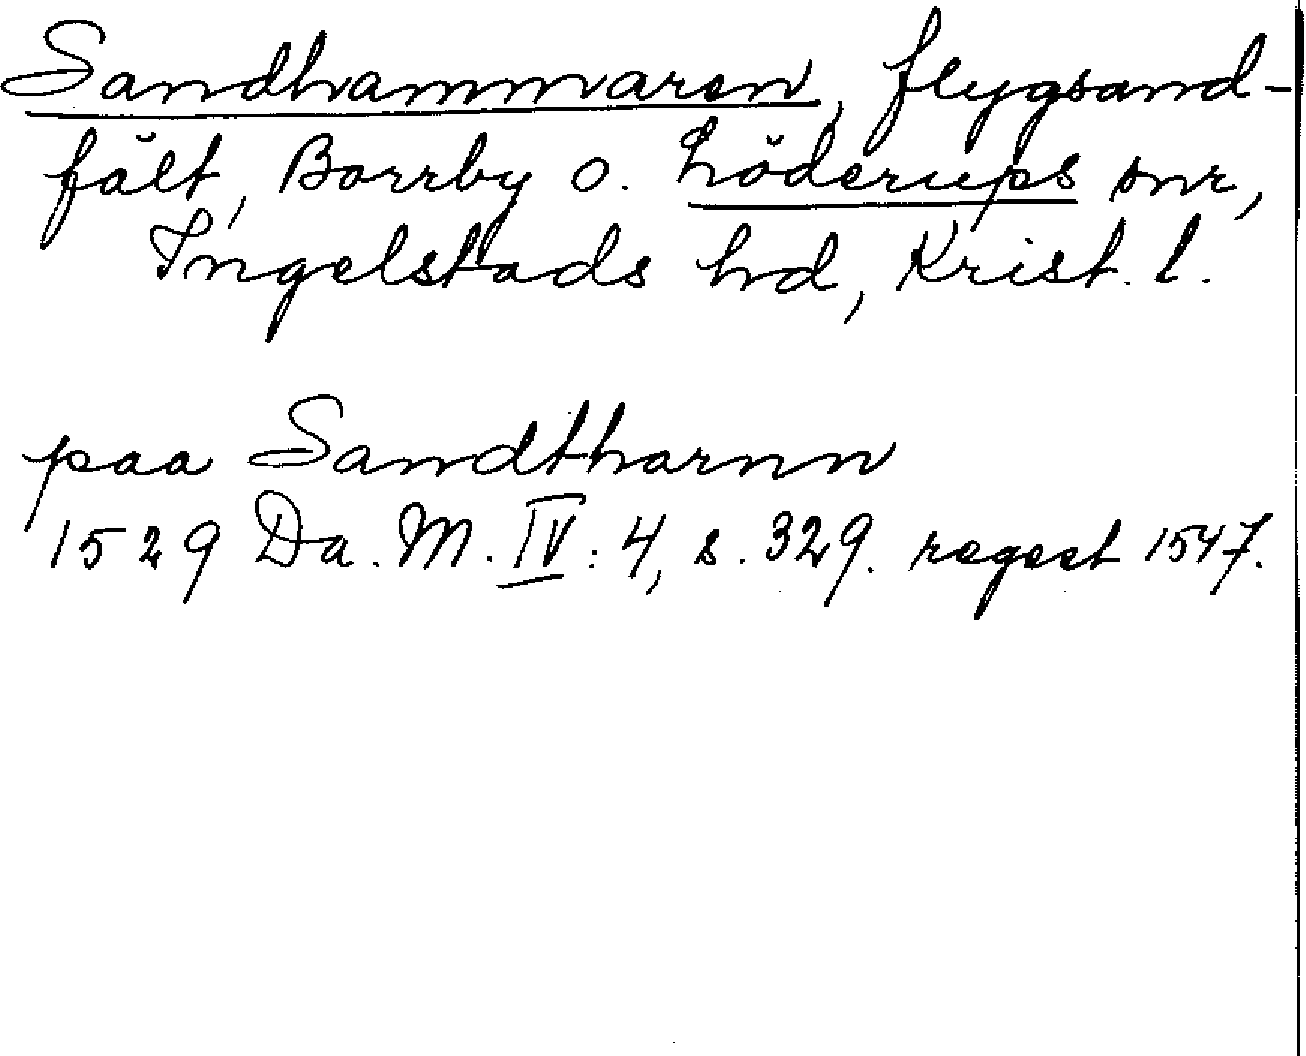 Sandhammaren, flygsand-
fält, Borrby o. Löderups snr,
Ingelstads hd, Krist. l.
paa Sandtharnn
1529 Da. M. IV: 4, s. 329. regest 1547.